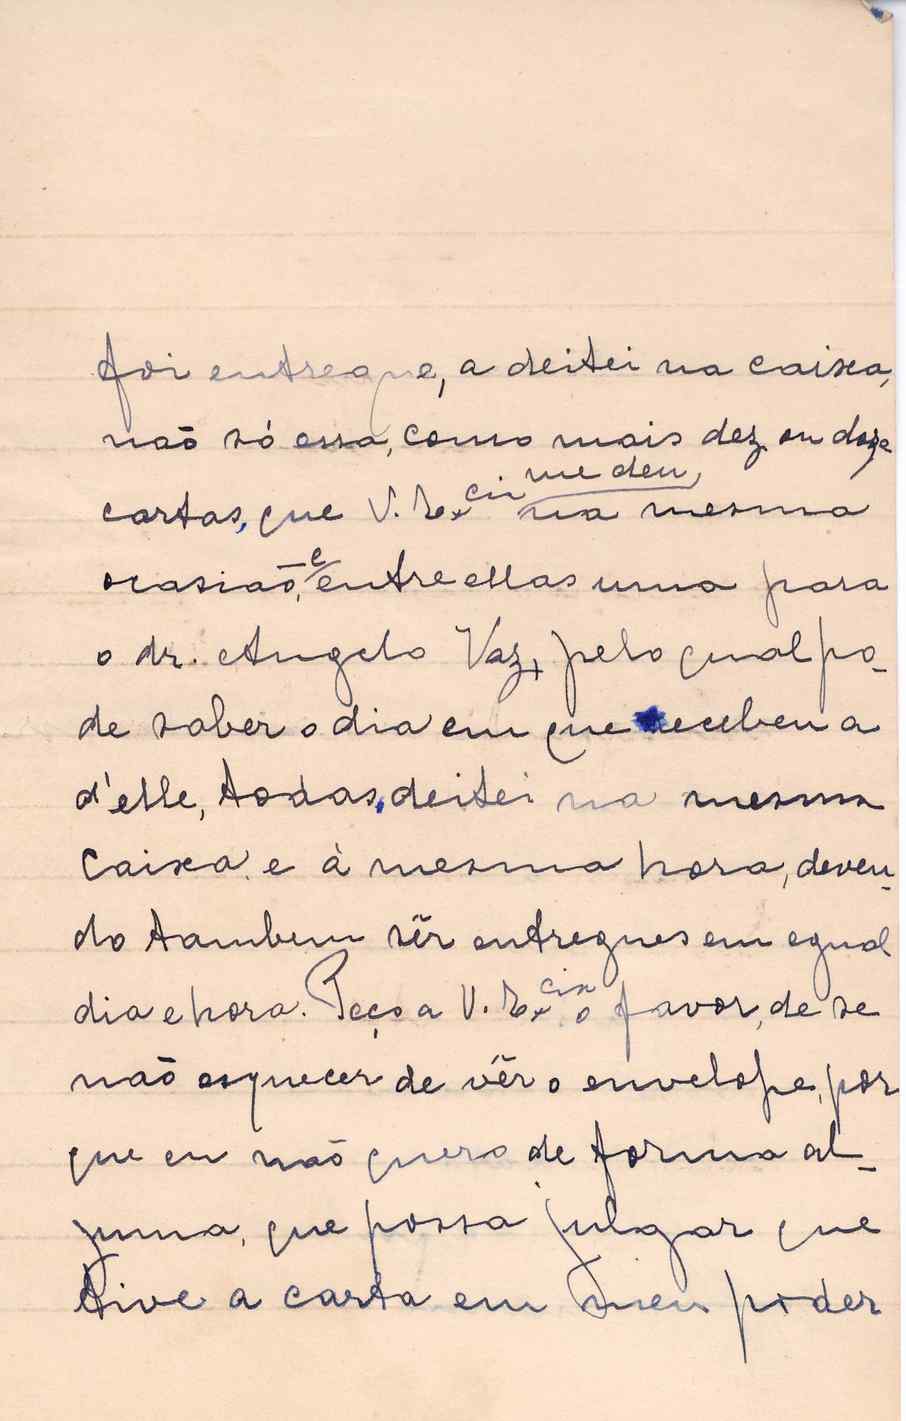 foi entregue, a deitei na caixa,
não só essa, como mais dez ou doze
cartas, que V. Ex.cia me deu, na mesma
ocasião, e entre ellas uma para
o dr. Angelo Vaz, pelo qual po-
de saber o dia em que recebeu a
d'elle, todas, deitei na mesma
caixa, e à mesma hora, deven-
do tambem sêr entregues em egual
dia e hora. Peço a V. Ex.cia o favor, de se
não esquecer de vêr o envelope, por
que eu não quero de forma al-
guma, que possa julgar que
tive a carta em meu poder